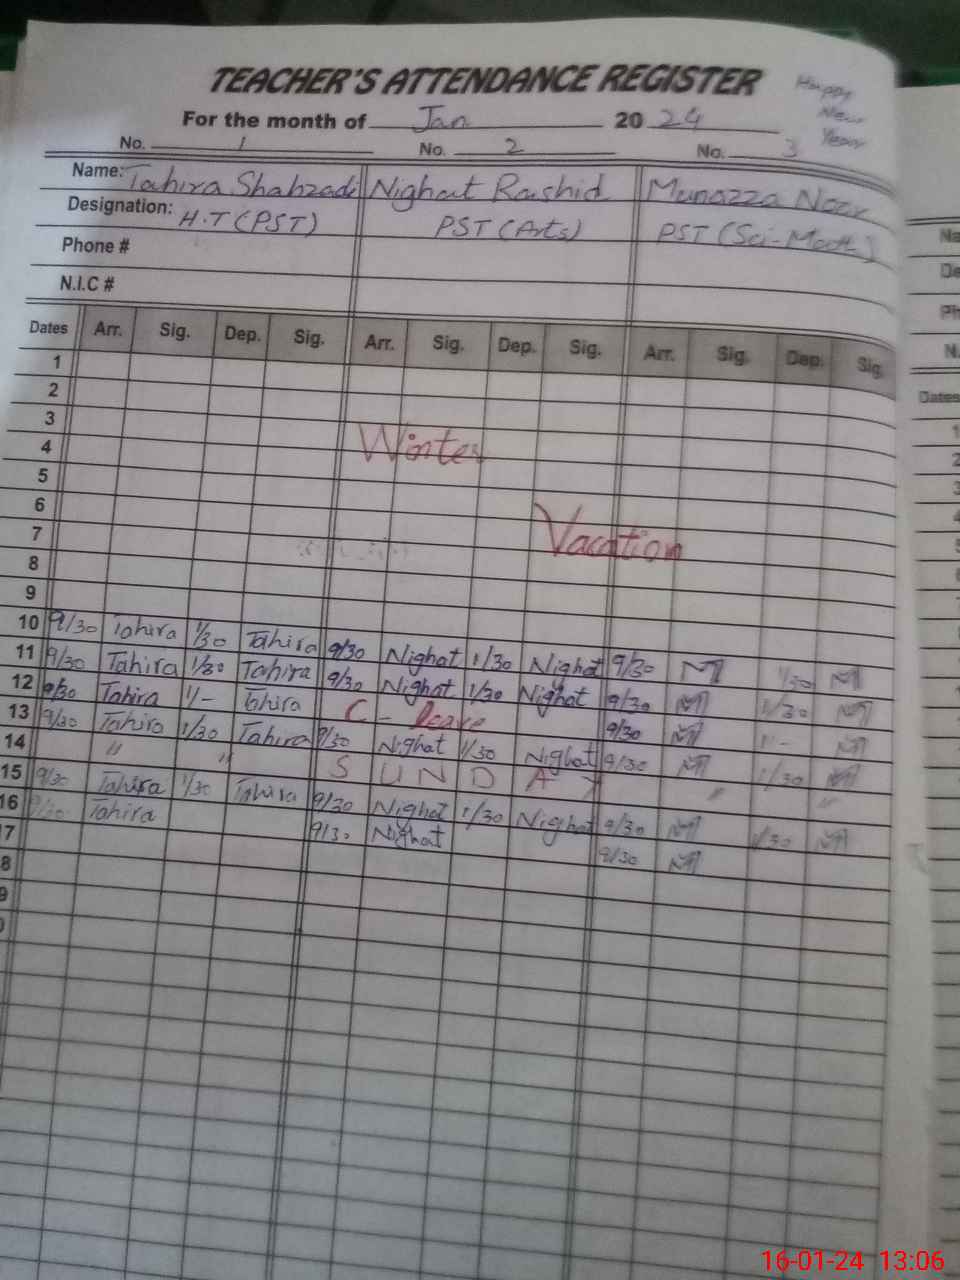 TEACHER'S ATTENDANCE REGISTER
Happy
New
Year
For the month of Jan 2024
No. 1 No. 2 No. 3
Name: Tahira Shahzadi Nighat Rashid Munazza Noor
Designation: H.T (PST) PST (Arts) PST (Sci-Math)
Phone #
N.I.C #
Dates Arr. Sig. Dep. Sig. Arr. Sig. Dep. Sig. Arr. Sig. Dep. Sig.
1
2
3
4 Winter
5
6
7 Vacation
8
9
10 9/30 Tahira 1/30 Tahira 9/30 Nighat 1/30 Nighat 9/30 1/30
11 9/30 Tahira 1/30 Tahira 9/30 Nighat 1/30 Nighat 9/30 1/30
12 9/30 Tahira 1/- Tahira C - leave 9/30 1/-
13 9/30 Tahira 1/30 Tahira 9/30 Nighat 1/30 Nighat 9/30 1/30
14 " " S U N D A Y " "
15 9/30 Tahira 1/30 Tahira 9/30 Nighat 1/30 Nighat 9/30 1/30
16 9/30 Tahira 9/30 Nighat 9/30
7
8
9
0
Na
De
Ph
N.
Dates
1
2
3
4
5
6
16-01-24 13:06